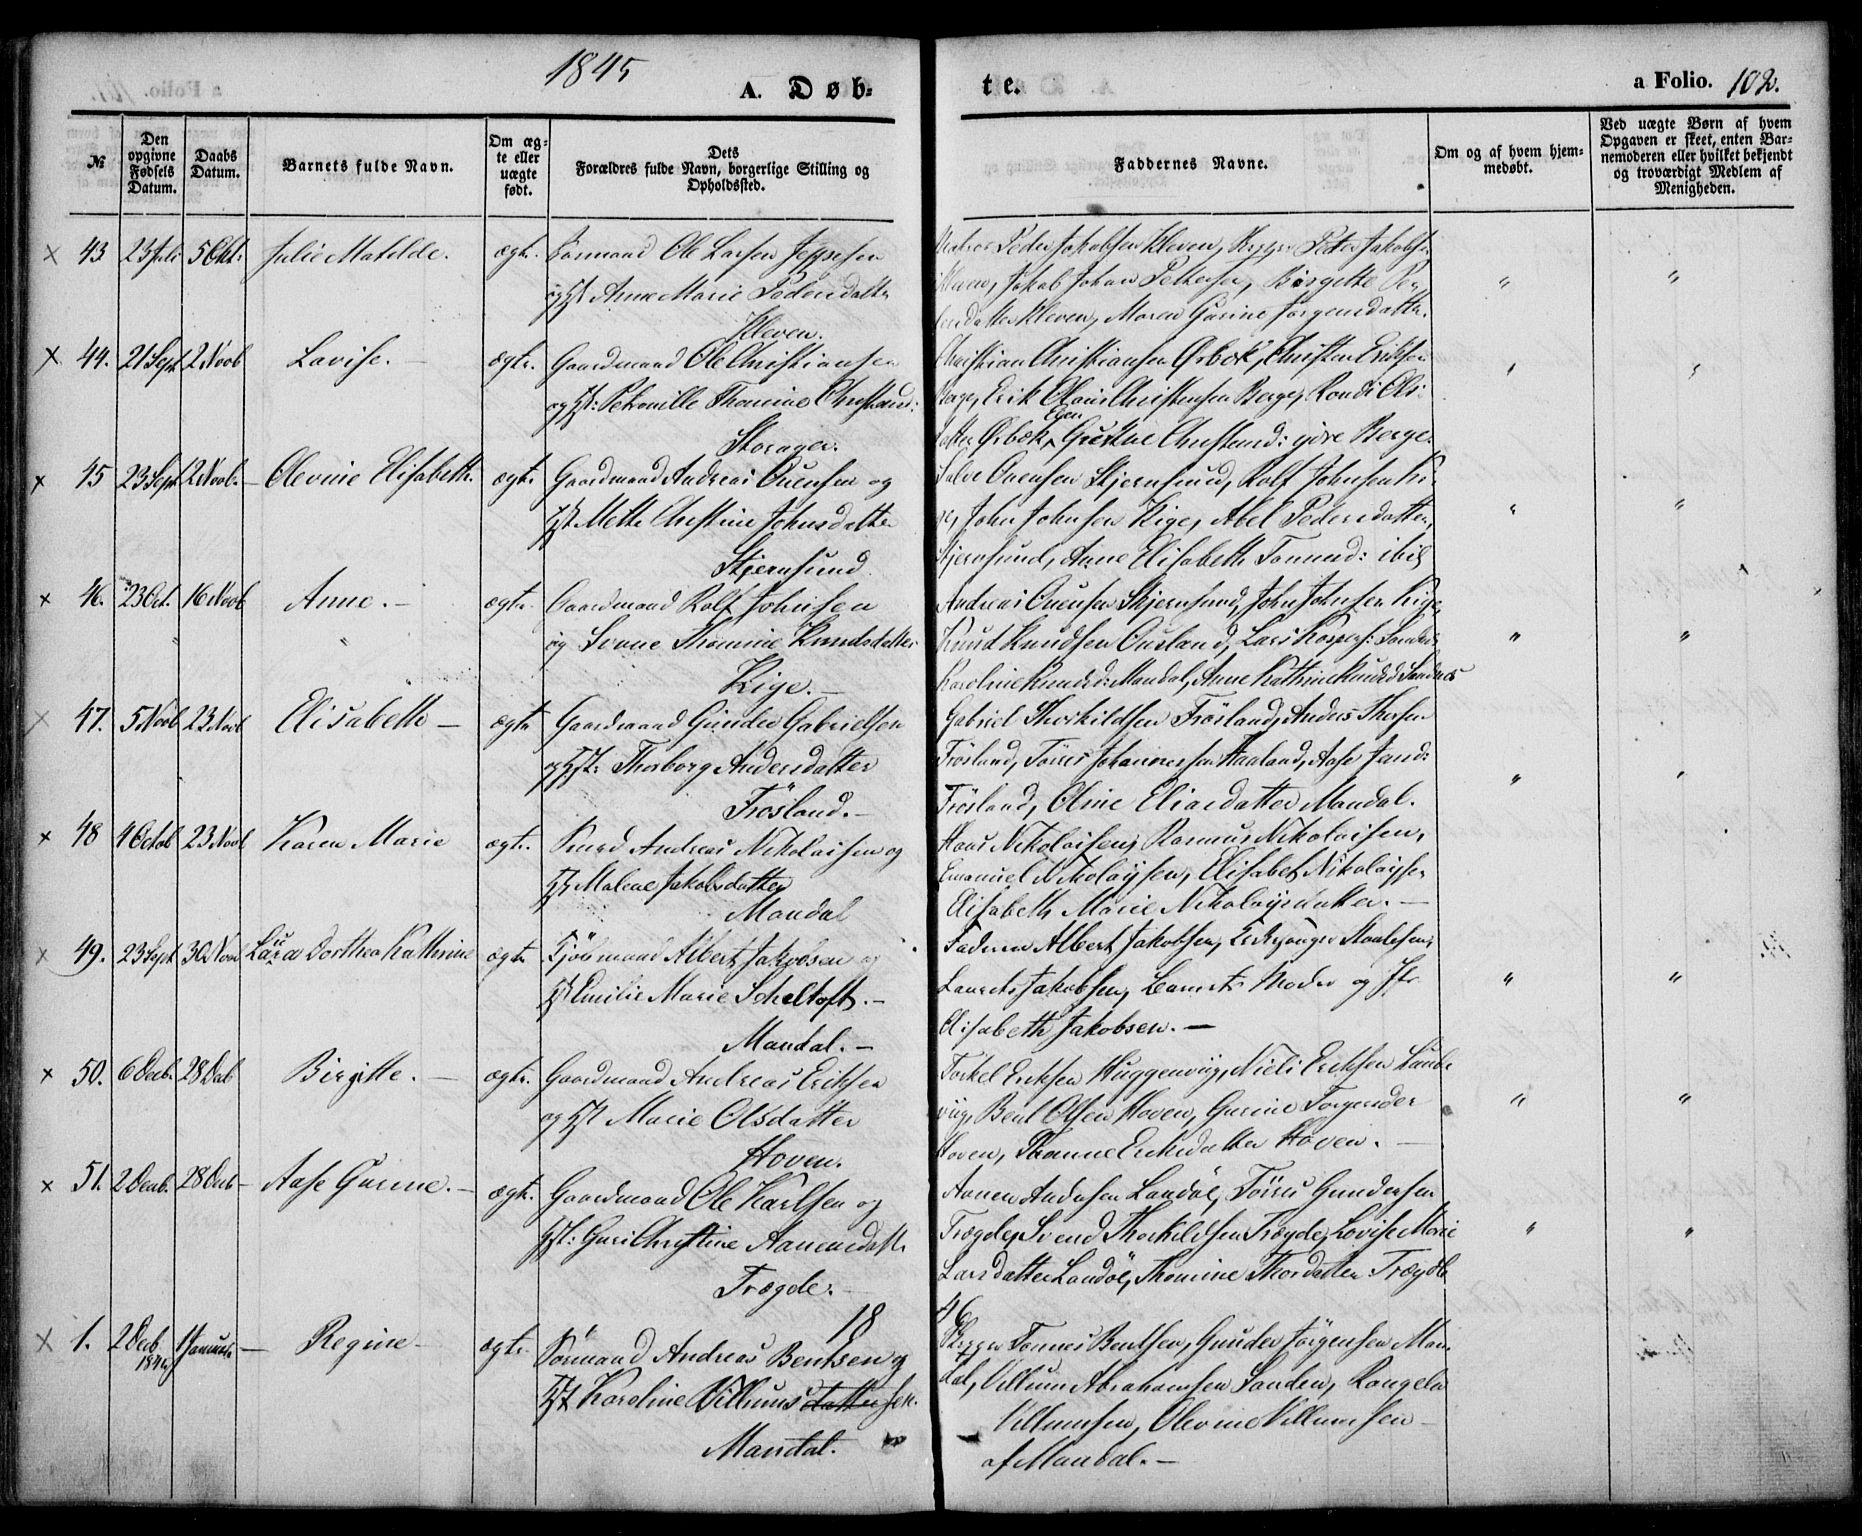 1845
A. Døb-
te.
a Folio. 102.
№
Den opgivne Fødsels Datum.
Daabs Datum.
Barnets fulde Navn.
Om ægte eller uægte født.
Dets
Forældres fulde Navn, borgerlige Stilling og
Opholdssted.
Faddernes Navne.
Om og af hvem hjem-
medøbt.
Ved uægte Børn af hvem
Opgaven er skeet, enten Bar-
nemoderen eller hvilket bekjendt
og troværdigt Medlem af
Menigheden.
× 43 23 Juli 5 Okt: Julie Matilde. ægt. Sømand Ole Larsen Jeppesen
og Hst Anne Marie Pedersdatter
Kleven.
Peder Jakobsen Kleven, Peter Jakobs:
Jakob Johan Petersen, Birgitte Pe-
dersdatter Kleven, Maren Gurine Jørgensdatter.
× 44. 21 Sept 2 Novb Lavise. — ægte. Gaardmand Ole Christiansen
og Hst: Petronille Thomine Christiansd:
Storager.
Christian Christiansen Ørbæk, Christen Eriksen
Berge, Erik Olaus Christensen Berge, Rondi Ols-
datter Ørbæk, Christiansd: ydre Berge.
× 45 23 Sept 2 Novb. — Olevine Elisabeth. ægt. Gaardmand Andreas Ouensen og
Hst Mette Christine Johnsdatter
Skjernsund
Salve Ouensen Skjernsund, Rolf Johnsen Ki-
ge, John Johnsen Kige, Abel Pedersdatter,
Skjernsund, Anne Elisabeth Tomined: ibid
× 46. 23 Oct. 16 Novb Anne. — ægte. Gaardmand Rolf Johnsen
og Svane Thomine Knudsdatter
Kige. —
Andreas Ouensen Skjernsund, John Johnsen Kige,
Knud Knudsen Ousland, Lars Kaspers: Sandnes
Karoline Knudsd: Mandal, Anne Kathrine Knudsd Sandnes
× 47. 5 Novb 23 Novb Elisabeth — ægte Gaardmand Gunder Gabrielsen
og Hst: Thorborg Andersdatter
Frøsland. —
Gabriel Thorkildsen Frøsland, Anders Thorsen
Frøsland, Tørres Johannessen Haaland, Aase Jansd:
Frøsland, Oline Eliasdatter Mandal.
× 48 4 Octob 23 Novb Karen Marie ægt. Knud Andreas Nikolaisen og
Hst Malene Jakobsdatter
Mandal
Hans Nikolaisen, Rasmus Nikolaisen,
Emanuel Nikolaysen, Elisabet Nikolaysen
Elisabeth Marie Nikolaysdatter. —
× 49. 23 Sept 30 Novb Laura Dorthea Kathrine ægt Albert Jakobsen og
Hst Emilie Marie Scheltoft. —
Mandal. —
Faderen Albert Jakobsen, Staalesen,
Laurits Jakobsen, Barnets Moder og Jfr
Elisabeth Jakobsen. —
× 50. 6 Decb. 28 Decb Birgitte. — ægt. Gaardmand Andreas Eriksen
og Hst Marie Olsdatter
Hoven.
Torkel Eriksen Huggenviig, Niels Eriksen
viig, Bent Olsen Hoven, Gurine
Hoven, Eriksdatter Hoven. —
× 51. 2 Decb. 28 Decb — Aase Gurine. — ægt. Gaardmand Ole Karlsen og
Hst: Guri Christine Aanensdatter
Trægde. —
Aanen Andersen Landøe, Tørres Gundersen
Trægde, Svend Thorkildsen Trægde, Lovise Marie
Larsdatter Landøe, Thomine Thorsdatter Trægde
18
46
× 1. 2 Decb 1845 1 Januar — Regine — ægt. Sømand Andreas Bentsen og
Hst Karoline Villums datter sen.
Mandal.
Tønnes Bentsen, Gunder Jørgensen Man-
dal, Villum Abrahamsen Sanden, Rangela
Villumsen, Olevine Villumsen —
af Mandal. —